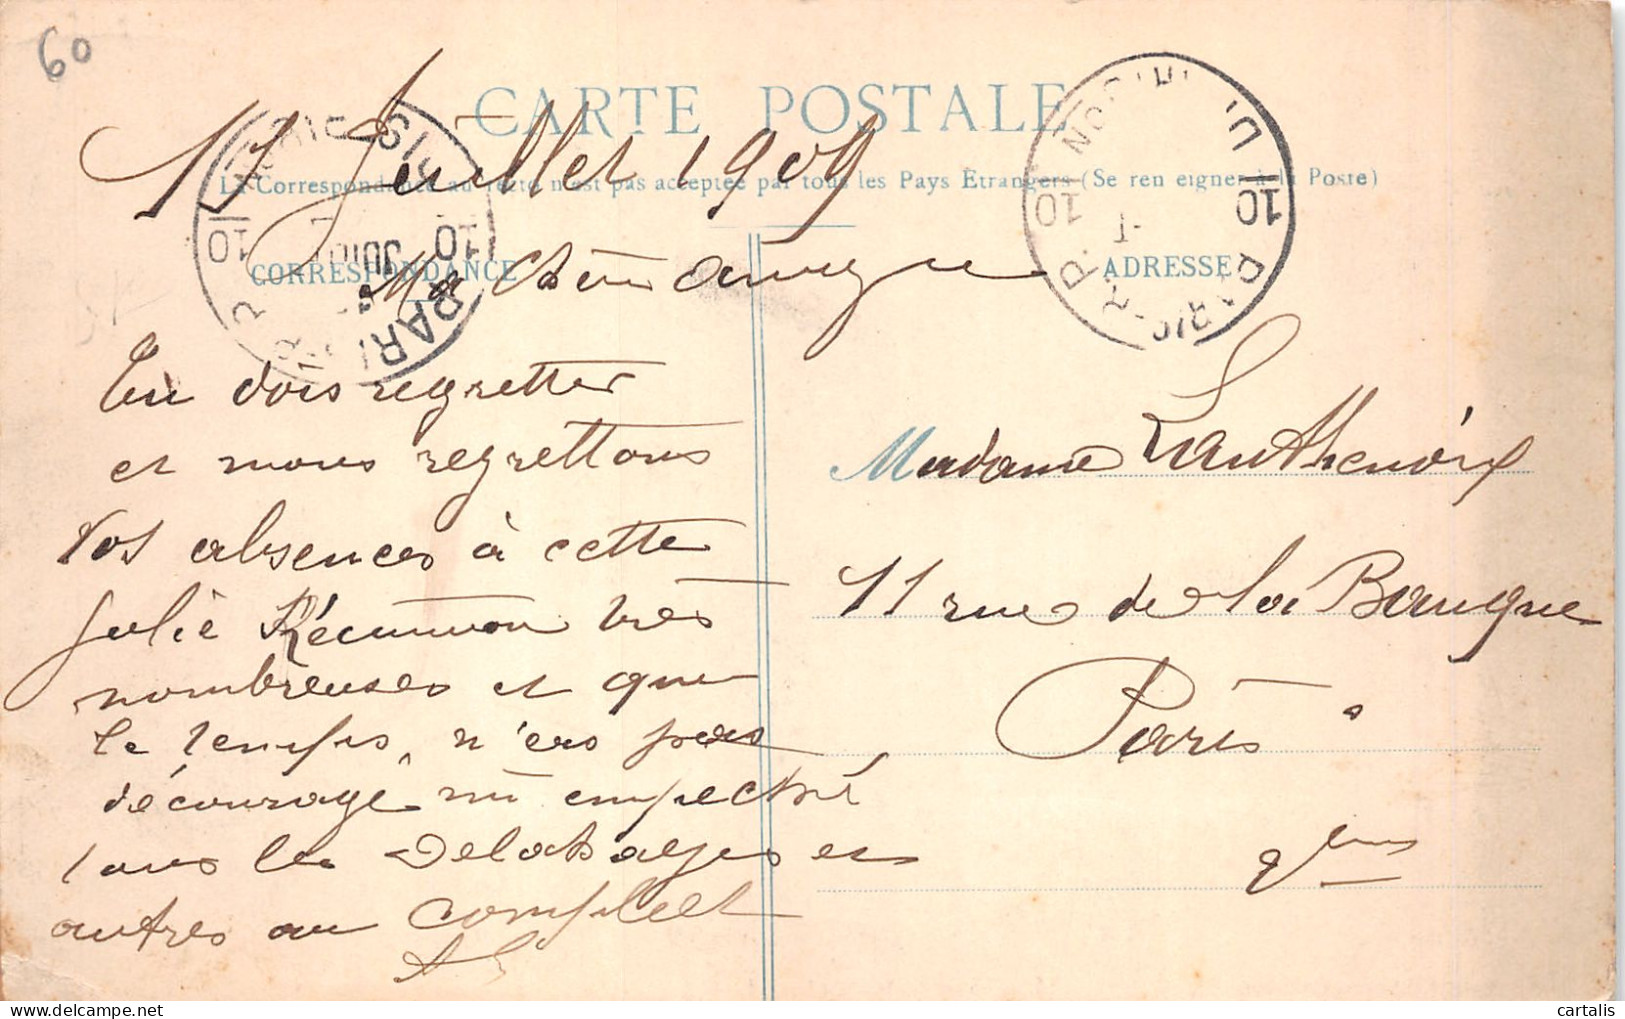 60
CARTE POSTALE
17 Juillet 1909
La Correspondance au recto n'est pas acceptée par tous les Pays Étrangers (Se renseigner à la Poste)
CORRESPONDANCE
ADRESSE
Ma chère
Tu dois regretter
et nous regrettons
vos absences à cette
jolie Réunion très
nombreuses et que
le temps, n'as pas
décourage ni empeché
tous les Delabayes et
autres au complet
Madame Lauthenoix
11 rue de la Banque
Paris
2 ème
10
10
JUIL
PARIS
10
10
PARIS
cartalis